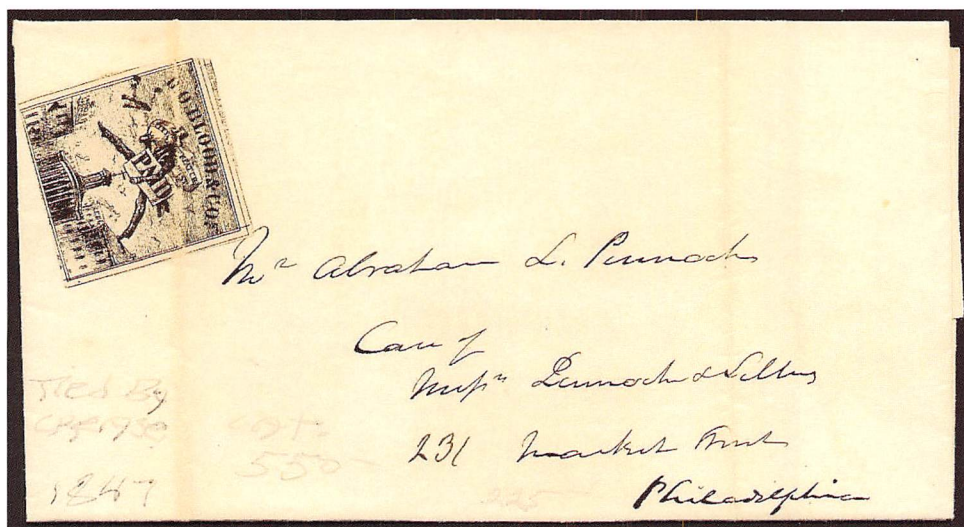 D.O. BLOOD & CO'S
PAID
Mr Abraham L. Pennock
Care of
Messrs Pennock & Sellers
231 Market Street
Philadelphia
Tied By
1847
550
225